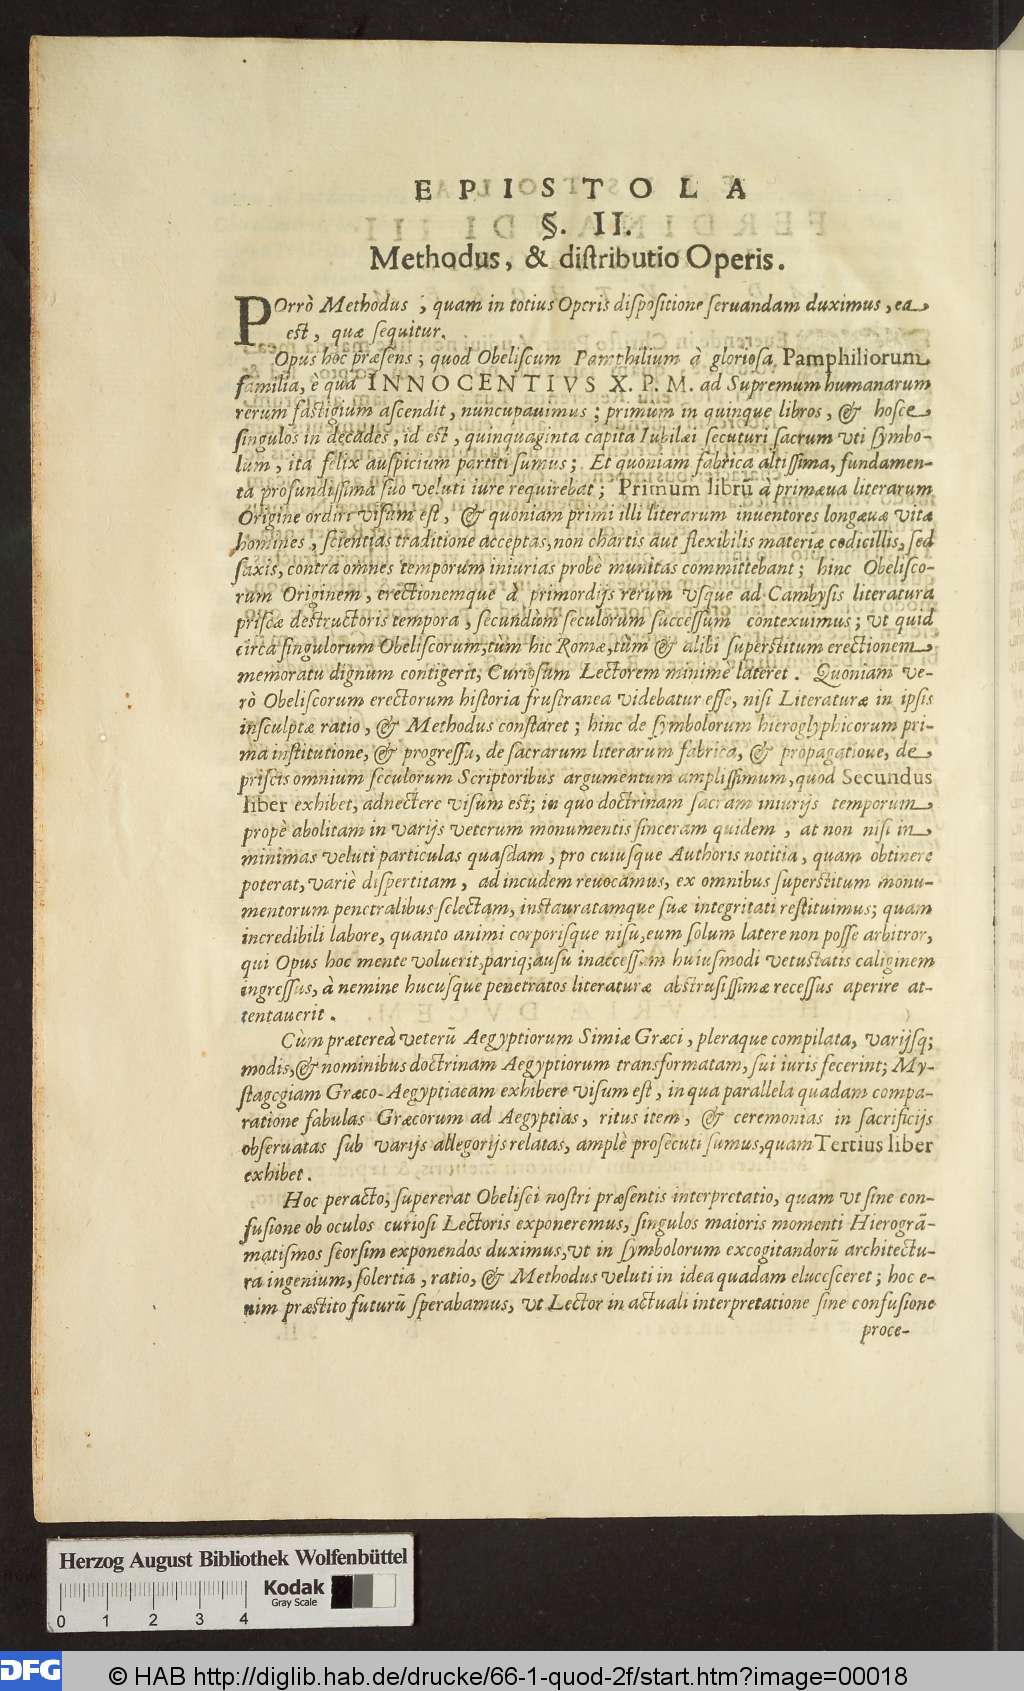 EPISTOLA
§. II.
Methodus, & distributio Operis.
POrrò Methodus, quam in totius Operis dispositione seruandam duximus, ea
est, quæ sequitur.
Opus hoc præsens; quod Obeliscum Pamphilium à gloriosa Pamphiliorum
familia, è qua INNOCENTIVS X. P. M. ad Supremum humanarum
rerum fastigium ascendit, nuncupauimus; primum in quinque libros, & hosce
singulos in decades, id est, quinquaginta capita Iubilæi secuturi sacrum vti symbo-
lum, ita felix auspicium partiti sumus; Et quoniam fabrica altissima, fundamen-
ta profundissima suo veluti iure requirebat; Primum librũ à primæua literarum
Origine ordiri visum est, & quoniam primi illi literarum inuentores longæuæ vitæ
homines, scientias traditione acceptas, non chartis aut flexibilis materiæ codicillis, sed
saxis, contra omnes temporum iniurias probè munitas committebant; hinc Obelisco-
rum Originem, erectionemque à primordijs rerum vsque ad Cambysis literatura
priscæ destructoris tempora, secundùm seculorum successum contexuimus; vt quid
circa singulorum Obeliscorum, tùm hic Romæ, tùm & alibi superstitum erectionem
memoratu dignum contigerit, Curiosum Lectorem minimè lateret. Quoniam ve-
rò Obeliscorum erectorum historia frustranea videbatur esse, nisi Literaturæ in ipsis
insculptæ ratio, & Methodus constaret; hinc de symbolorum hieroglyphicorum pri-
ma institutione, & progressu, de sacrarum literarum fabrica, & propagatioue, de
priscis omnium seculorum Scriptoribus argumentum amplissimum, quod Secundus
liber exhibet, adnectere visum est; in quo doctrinam sacram iniurijs temporum
propè abolitam in varijs veterum monumentis sinceram quidem, at non nisi in
minimas veluti particulas quasdam, pro cuiusque Authoris notitia, quam obtinere
poterat, variè dispertitam, ad incudem reuocamus, ex omnibus superstitum monu-
mentorum penetralibus selectam, instauratamque suæ integritati restituimus; quam
incredibili labore, quanto animi corporisque nisu, eum solum latere non posse arbitror,
qui Opus hoc mente voluerit, pariq; ausu inaccessam huiusmodi vetustatis caliginem
ingressus, à nemine hucusque penetratos literaturæ abstrusissimæ recessus aperire at-
tentauerit.
Cùm prætereà veterũ Aegyptiorum Simiæ Græci, pleraque compilata, varijsq;
modis, & nominibus doctrinam Aegyptiorum transformatam, sui iuris fecerint; My-
stagogiam Græco-Aegyptiacam exhibere visum est, in qua parallela quadam compa-
ratione fabulas Græcorum ad Aegyptias, ritus item, & ceremonias in sacrificijs
obseruatas sub varijs allegorijs relatas, amplè prosecuti sumus, quam Tertius liber
exhibet.
Hoc peracto, supererat Obelisci nostri præsentis interpretatio, quam vt sine con-
fusione ob oculos curiosi Lectoris exponeremus, singulos maioris momenti Hierogrã-
matismos seorsim exponendos duximus, vt in symbolorum excogitandorũ architectu-
ra ingenium, solertia, ratio, & Methodus veluti in idea quadam elucesceret; hoc e-
nim præstito futurũ sperabamus, vt Lector in actuali interpretatione sine confusione
proce-
Herzog August Bibliothek Wolfenbüttel
Kodak
Gray Scale
0 1 2 3 4
DFG
© HAB http://diglib.hab.de/drucke/66-1-quod-2f/start.htm?image=00018